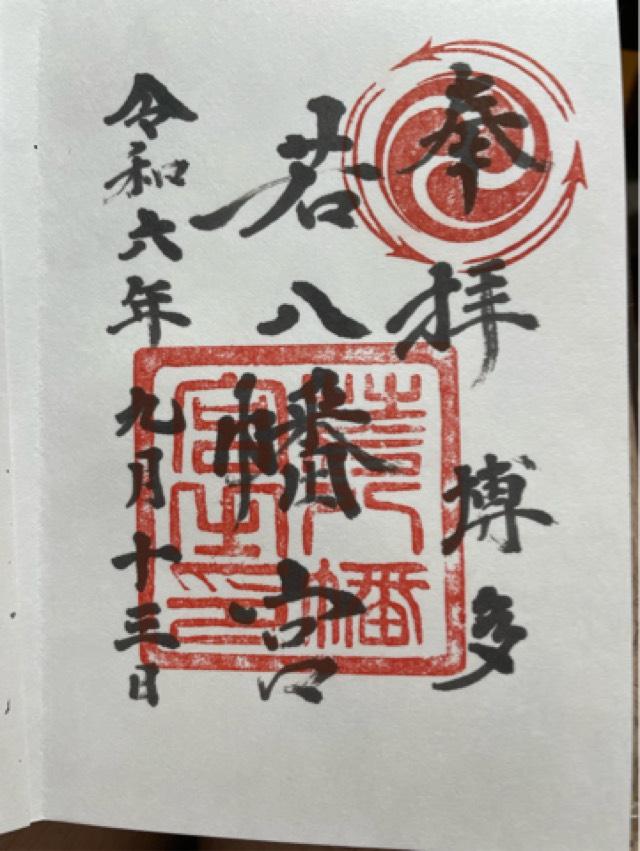 奉拝 博多
若八幡宮
令和六年九月十三日
若八幡
宮之印